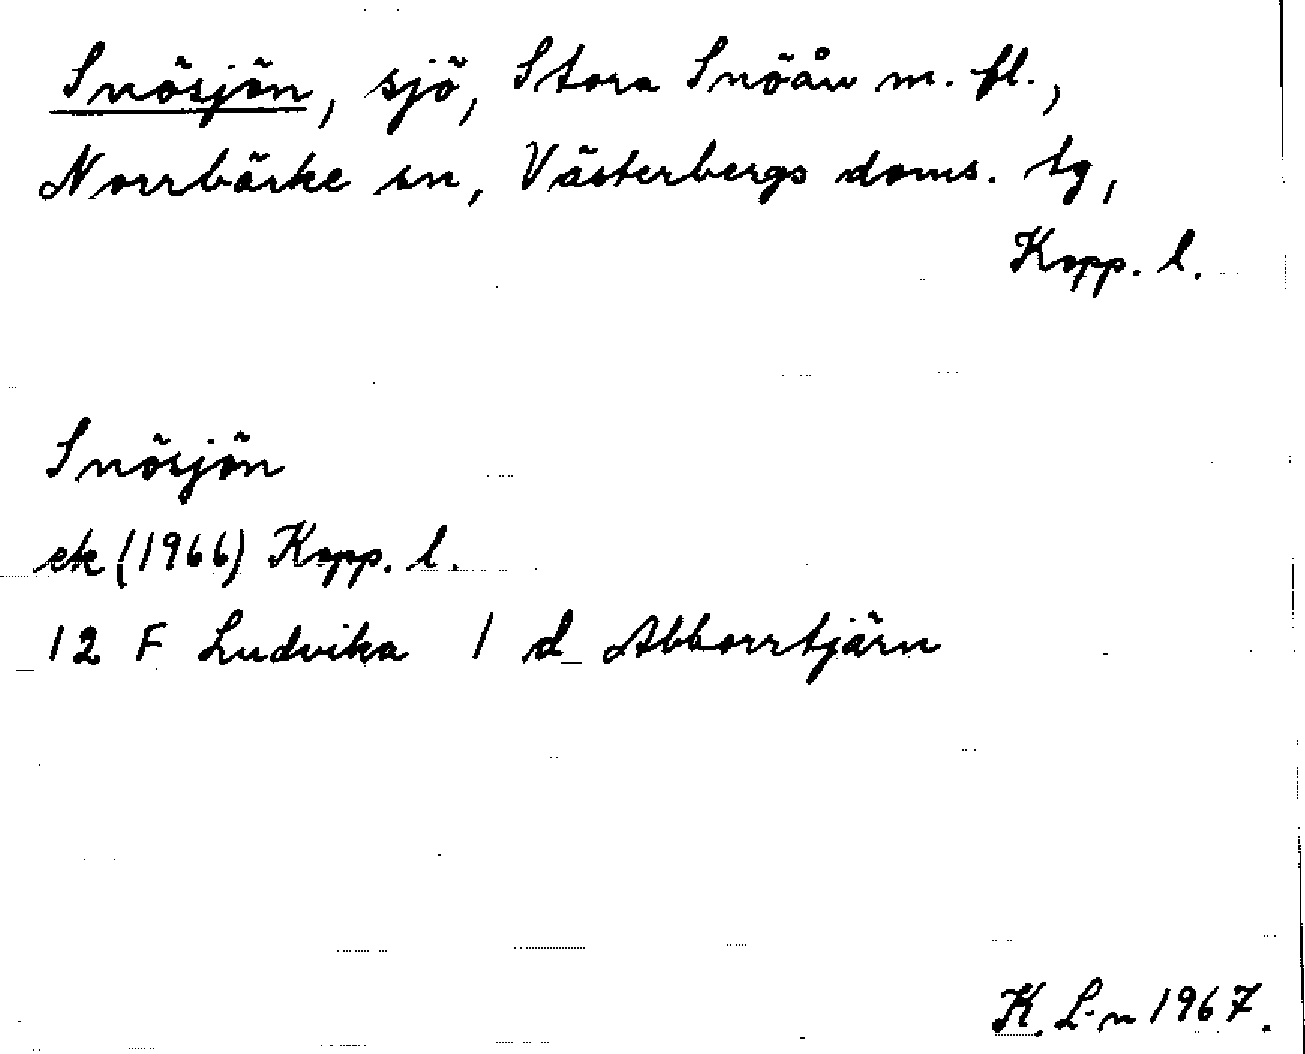 Snösjön, sjö, Stora Snöån m. fl.,
Norrbärke sn, Västerbergs doms. tg,
Kopp. l.
Snösjön
ek (1966) Kopp. l.
12 F Ludvika 1 d Abborrtjärn
K. L-n 1967.